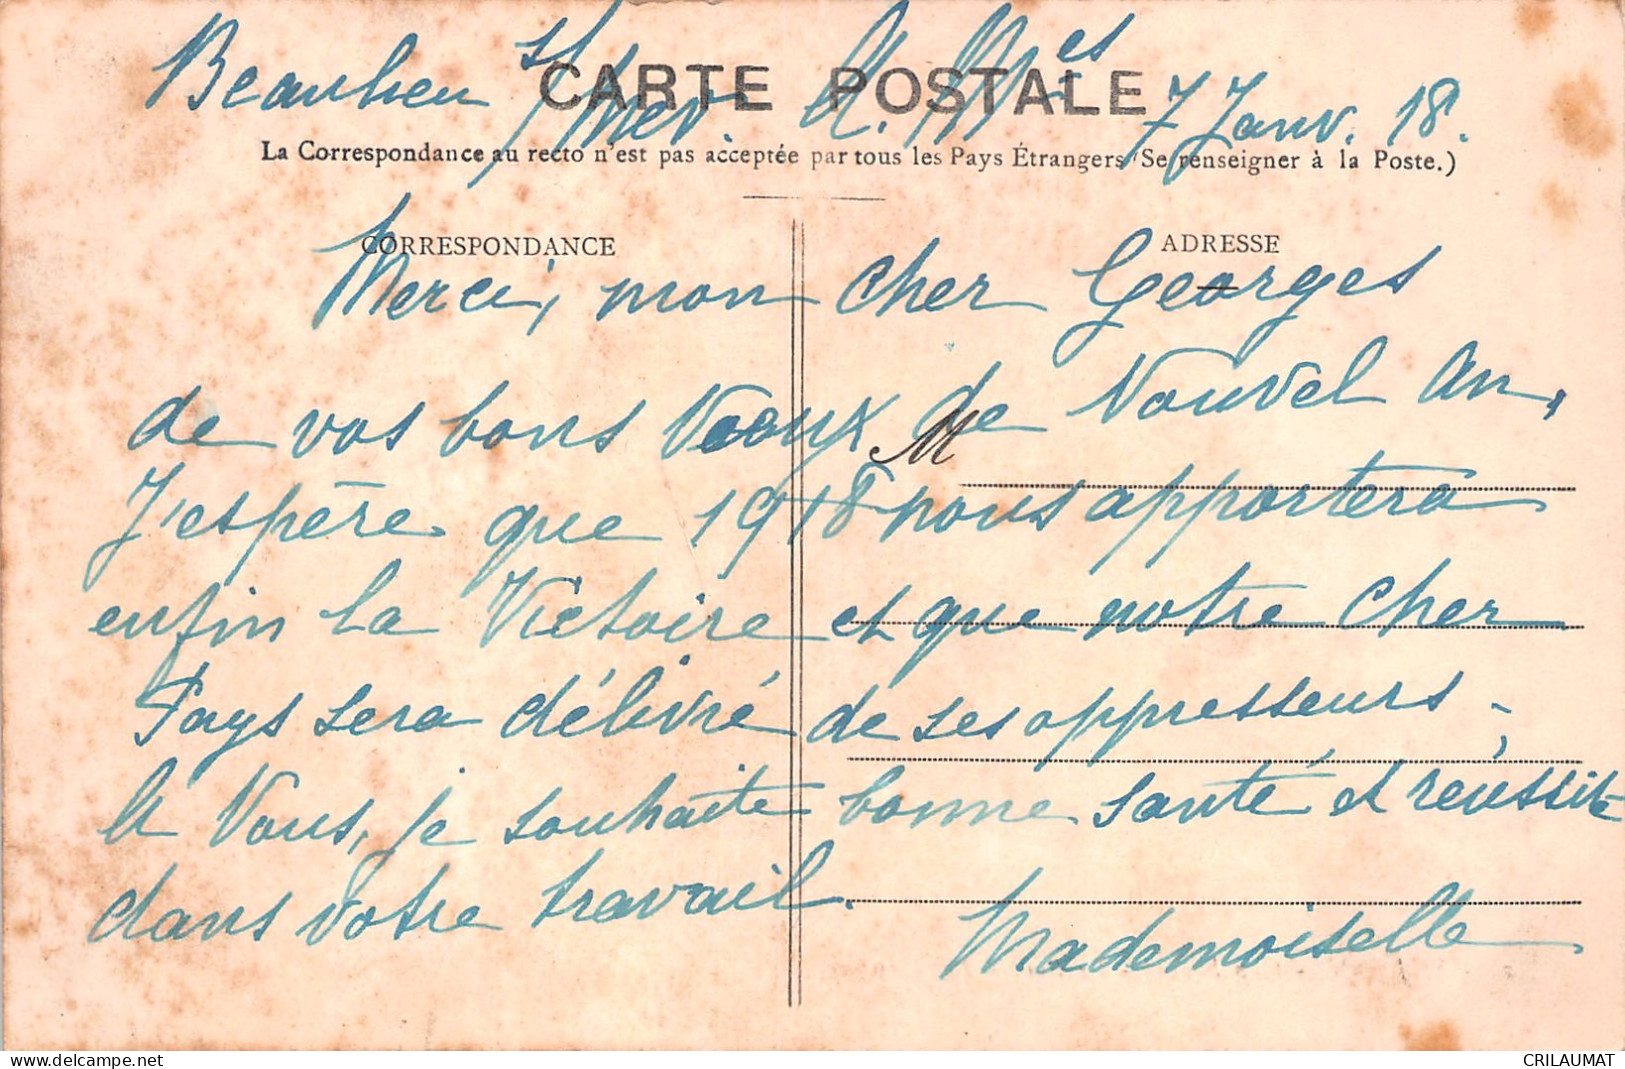 Beaulieu s/Mer. A. Mmes 7 Janv. 18.
CARTE POSTALE
La Correspondance au recto n'est pas acceptée par tous les Pays Étrangers (Se renseigner à la Poste.)
CORRESPONDANCE
ADRESSE
Merci, mon cher Georges
de vos bons Voeux de Nouvel An,
M
J'espère que 1918 nous apportera
enfin la Victoire et que notre cher
Pays sera délivré de ses oppresseurs -
A Vous, je souhaite bonne santé et réussite
dans votre travail.
Mademoiselle
delcampe.net
CRILAUMAT